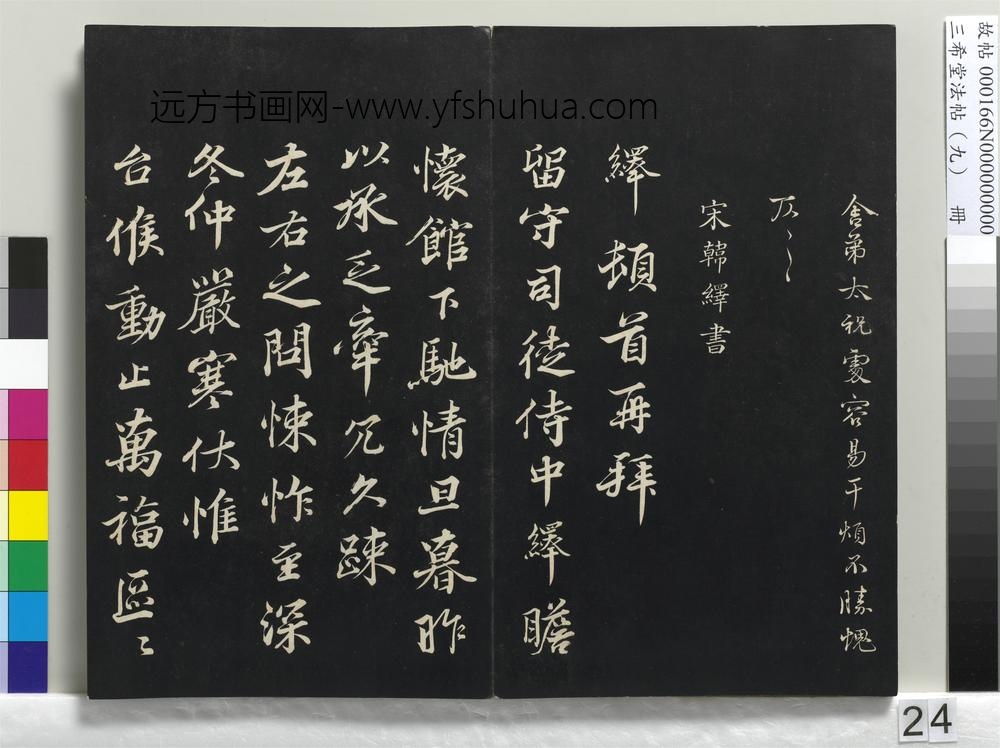 故帖 000166N000000000
三希堂法帖（九） 冊
远方书画网-www.yfshuhua.com
舍弟太祝處容易干煩不勝愧
宋韓繹書
繹頓首再拜
留守司徒侍中繹瞻
懷館下馳情旦暮昨
以承乏牽冗久踈
左右之問悚怍至深
冬仲嚴寒伏惟
台候動止萬福區〻
24